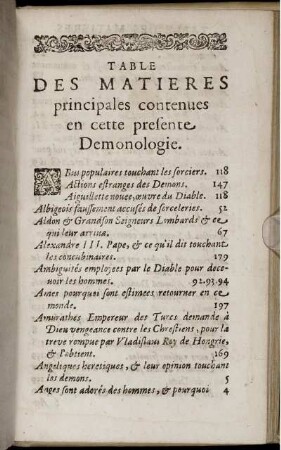 TABLE
DES MATIERES
principales contenues
en cette presente
Demonologie.
ABus populaires touchant les sorciers. 118
Actions estranges des Demons. 147
Aiguillette nouee, œuvre du Diable. 118
Albigeois faussement accusés de sorceleries. 52
Aldon & Grandson Seigneurs Lombards & ce
qui leur arriva. 67
Alexandre III. Pape, & ce qu'il dit touchant
les concubinaires. 179
Ambiguités employees par le Diable pour dece-
voir les hommes. 92.93.94
Ames pourquoi sont estimees retourner en ce
monde. 197
Amurathés Empereur des Turcs demande à
Dieu vengeance contre les Chrestiens, pour la
treve rompue par Vladislaus Roy de Hongrie,
& l'obtient. 169
Angeliques heretiques, & leur opinion touchant
les demons. 5
Anges sont adorés des hommes, & pourquoi 4